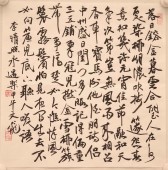 落日鎔金暮雲合璧人在何
處染柳煙濃吹梅笛怨春
意知幾許元宵佳節融和天
氣次第豈無風雨來相召香
車寶馬謝他酒朋詩侶
中州盛日閨門多暇記得偏重
三五鋪翠冠兒撚金雪柳簇
帶爭濟楚如今憔悴風
鬟霧鬢怕見夜間出去不
如向簾兒底下聽人笑語
李清照永遇樂